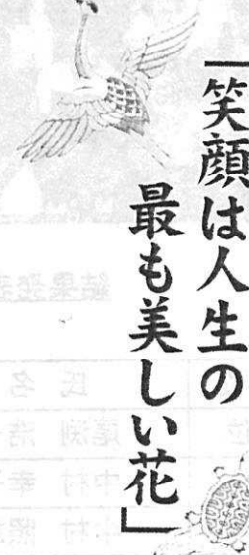 「笑顔は人生の
最も美しい花」